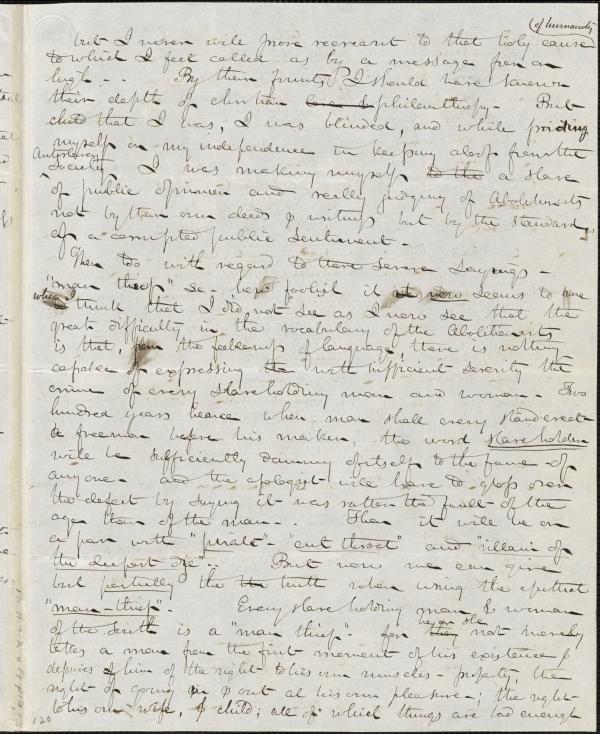 (of humanity
but I never will prove recreant to that holy cause
to which I feel called as by a message from on
high - - By their fruits I should have known
their depth of christian love & philanthropy - But
child that I was, I was blinded, and while priding
myself on my independence in keeping aloof from the
Antislavery
Society, I was making myself to the a slave
of public opinion and really judging of Abolitionists
not by their own deeds & writings but by the standard
of a corrupted public sentiment -
Then too with regard to these severe sayings -
"man thief" &c - how foolish it at now seems to me
when I think that I did not see as I now see that the
great difficulty in the vocabulary of the Abolitionists
is that, from the feebleness of language, there is nothing
capable of expressing the with sufficient severity the
crime of every slaveholding man and woman - Two
hundred years hence when man shall every stand erect
a freeman before his maker, the word slaveholder
will be sufficiently damning of itself to the fame of
anyone - and the apologist will have to gloss over
the defect by saying it was rather the fault of the
age than of the man - . Then it will be on
a par with "pirate" - "cut throat" and "villain of
the deepest dye" - . But now we can give
but partially the the truth when using the epithet
"man-thief". Every slave holding man & woman
of the South is a "man thief" - for
he or she
they not merely
takes a man from the first moment of his existence &
deprives of him of the right to his own muscles - property, the
right of going in & out at his own pleasure - ; the right
to his own wife, & child; all of which things are bad enough
120